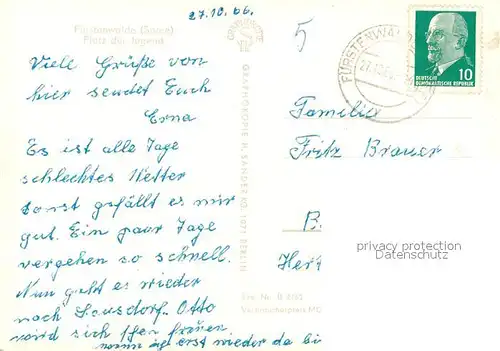 27.10.66.
Fürstenwalde (Spree)
Platz der Jugend
Viele Grüße von
hier sendet Euch
Erna
Es ist alle Tage
schlechtes Wetter
sonst gefällt es mir
gut. Ein paar Tage
vergehen so schnell.
Nun geht es wieder
nach Otto
wird sich freuen.
wenn ich erst wieder da bi
GRAPHOKOPIE H. SANDER KG 1071 BERLIN
5
FÜRSTENWAL
DEUTSCHE
DEMOKRATISCHE REPUBLIK
10
Familie
Fritz Brauer
B.
Her
privacy protection
Datenschutz